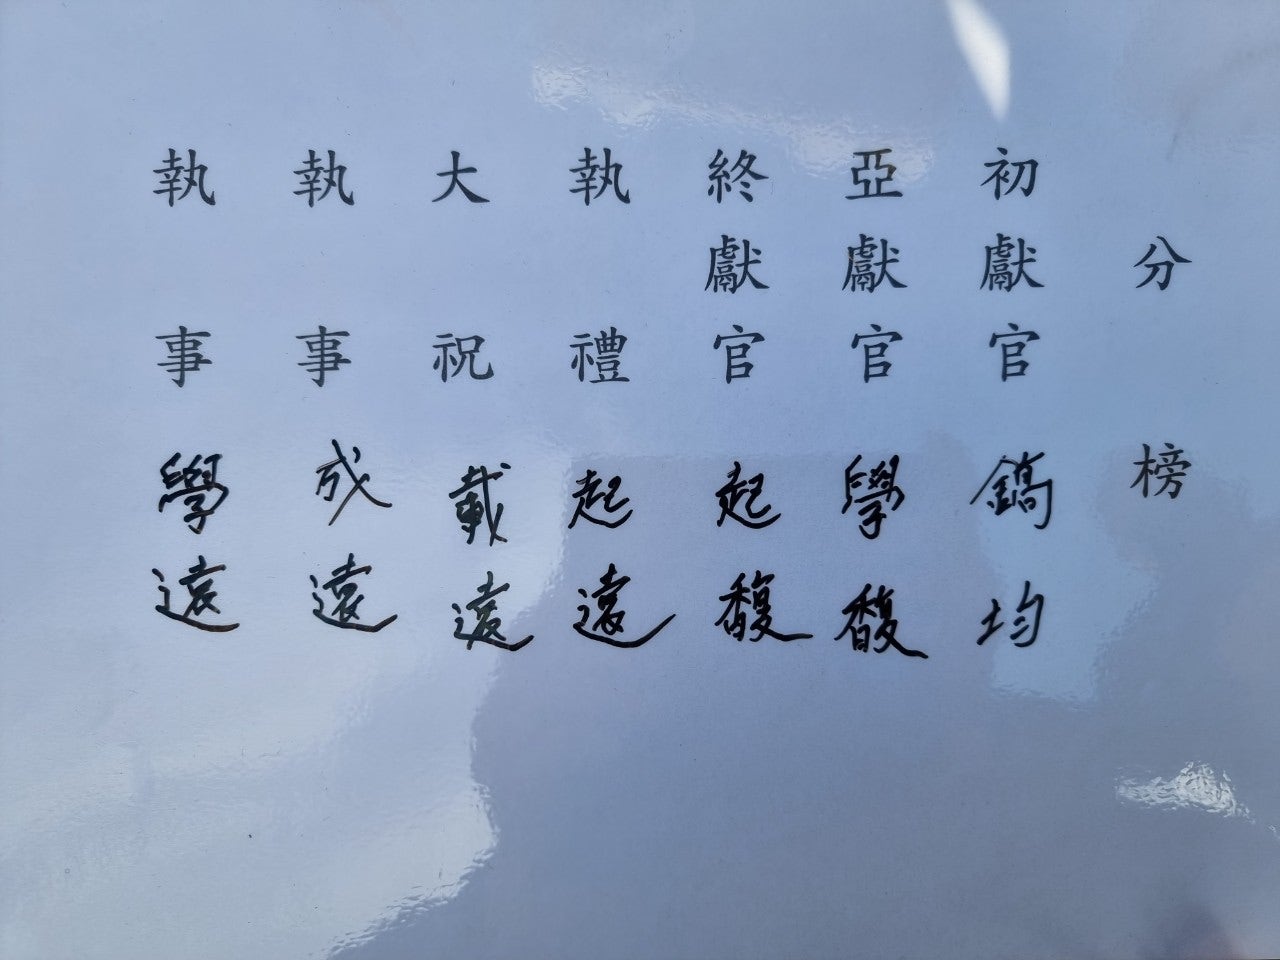 分榜
初獻官 鎬均
亞獻官 學馥
終獻官 起馥
執禮 起遠
大祝 載遠
執事 成遠
執事 學遠